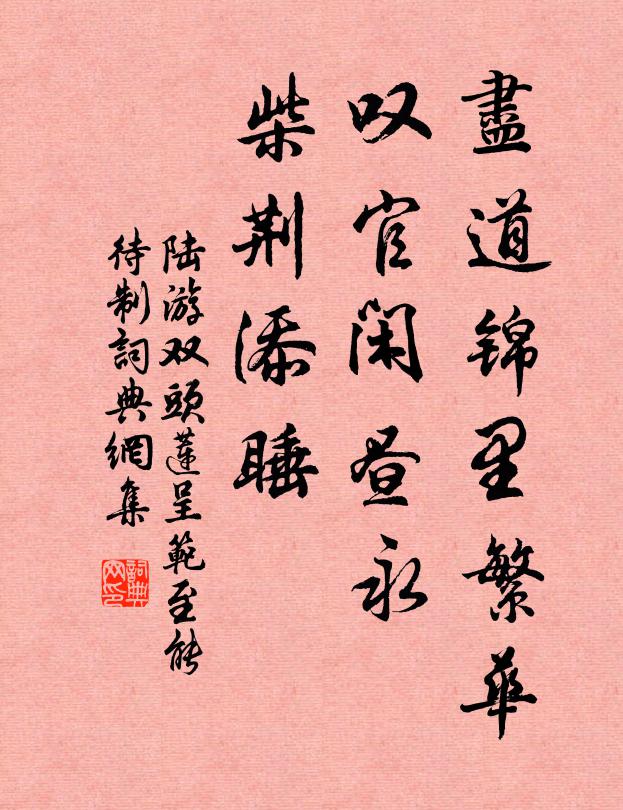 盡道锦里繁華
叹官閑昼永
柴荆添睡
陆游双頭莲呈範至能
待制詞典網集
詞典网印